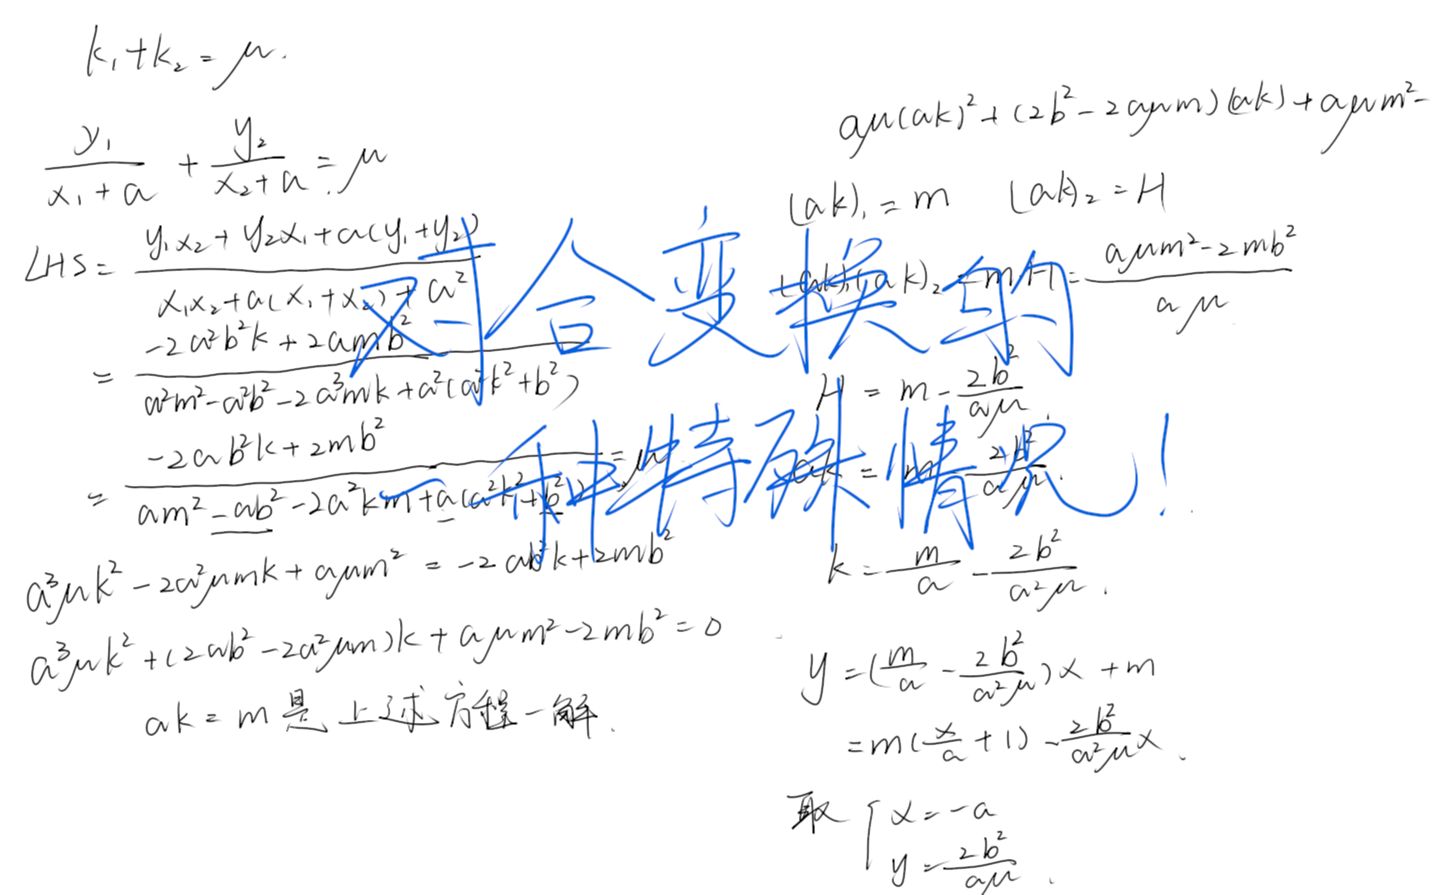 k₁+k₂=μ.
y₁/(x₁+a) + y₂/(x₂+a) = μ
LHS = (y₁x₂+y₂x₁+a(y₁+y₂))/(x₁x₂+a(x₁+x₂)+a²)
= (-2a²b²k+2amb²)/(a²m²-a²b²-2a³mk+a²(a²k²+b²))
= (-2ab²k+2mb²)/(am²-ab²-2a²km+a(a²k²+b²)) = μ
a³μk²-2a²μmk+aμm² = -2ab²k+2mb²
a³μk²+(2ab²-2a²μm)k+aμm²-2mb²=0
ak=m是上述方程一解.
aμ(ak)²+(2b²-2aμm)(ak)+aμm²-
(ak)₁=m (ak)₂=H
(ak)₁(ak)₂=mH=(aμm²-2mb²)/(aμ)
H=m-2b²/(aμ)
ak=m-2b²/(aμ).
k=m/a-2b²/(a²μ).
y=(m/a-2b²/(a²μ))x+m
=m(x/a+1)-2b²/(a²μ)x.
取{x=-a
y=2b²/(aμ).
对合变换的
一种特殊情况!